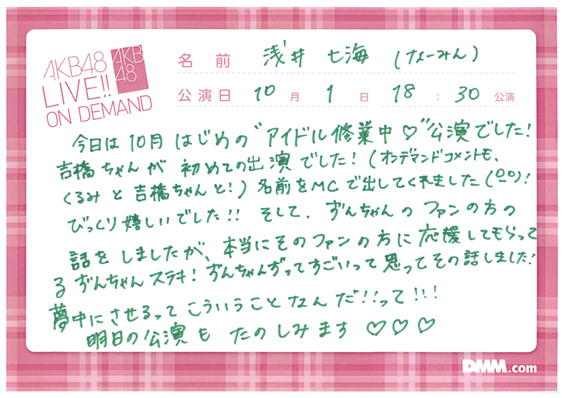 AKB48
LIVE!!
ON DEMAND
AKB
48
名前 浅井 七海 (なーみん)
公演日 10月 1日 18:30公演
今日は10月はじめの"アイドル修業中♡"公演でした!
吉橋ちゃんが初めての出演でした!(オンデマンドコメントも、
くるみと吉橋ちゃんと!)名前をMCで出してくれました(^o^)!
びっくり嬉しいでした!! そして、ずんちゃんのファンの方の
話をしましたが、本当にそのファンの方に応援してもらって
るずんちゃんステキ!ずんちゃんずってすごいって思ってその話しました!
夢中にさせるってこういうことなんだ!!って!!!
明日の公演もたのしみます♡♡♡
DMM.com